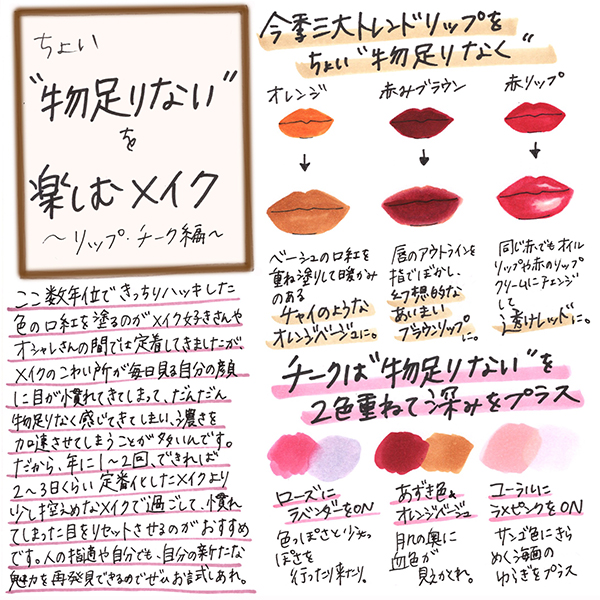 ちょい
"物足りない"
を
楽しむメイク
〜リップ・チーク編〜
ここ数年位できっちりハッキリした
色の口紅を塗るのがメイク好きさんや
オシャレさんの間では定着してきましたが、
メイクのこわい所が毎日見る自分の顔
に目が慣れてきてしまって、だんだん
物足りなく感じてきてしまい、濃さを
加速させてしまうことが多いんです。
だから、年に1〜2回、できれば
2〜3日くらい定着化したメイクより
少し控えめなメイクで過ごして、慣れ
てしまった目をリセットさせるのがおすすめ
です。人の指摘や自分でも、自分の新たな
魅力を再発見できるのでぜひお試しあれ。
今季三大トレンドリップを
ちょい"物足りなく"
オレンジ
ベージュの口紅を
重ね塗りして暖かみ
のある
チャイのような
オレンジベージュに。
赤みブラウン
唇のアウトラインを
指でぼかし、
幻想的な
あいまい
ブラウンリップに。
赤リップ
同じ赤でもオイル
リップや赤のリップ
クリームにチェンジ
して
透けレッドに。
チークは"物足りない"を
2色重ねて深みをプラス
ローズに
ラベンダーをON
色っぽさと少女っ
ぽさを
行ったり来たり。
あずき色&
オレンジベージュ
肌の奥に
血色が
見えかくれ。
コーラルに
ラメピンクをON
サンゴ色にきら
めく海面の
ゆらぎをプラス